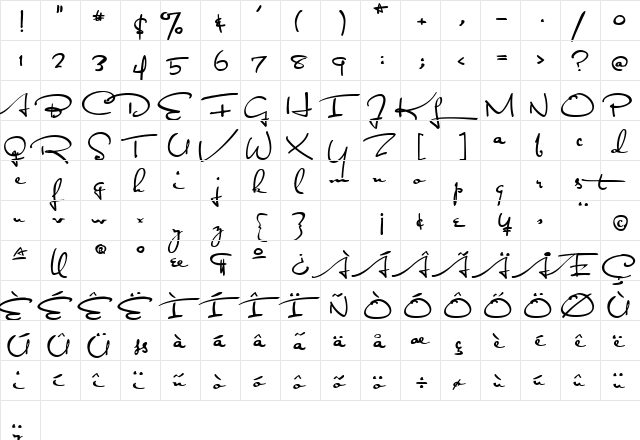 ! " # $ % & ' ( ) * + , - . / 0
1 2 3 4 5 6 7 8 9 : ; < = > ? @
A B C D E F G H I J K L M N O P
Q R S T U V W X Y Z [ ] a b c d
e f g h i j k l m n o p q r s t
u v w x y z { } ¡ ¢ £ ¥ ©
ª ® ° ¶ º ¿ À Á Â Ã Ä Å Æ Ç
È É Ê Ë Ì Í Î Ï Ñ Ò Ó Ô Õ Ö Ø Ù
Ú Û Ü ß à á â ã ä å æ ç è é ê ë
ì í î ï ñ ò ó ô õ ö ÷ ø ù ú û ü
ÿ